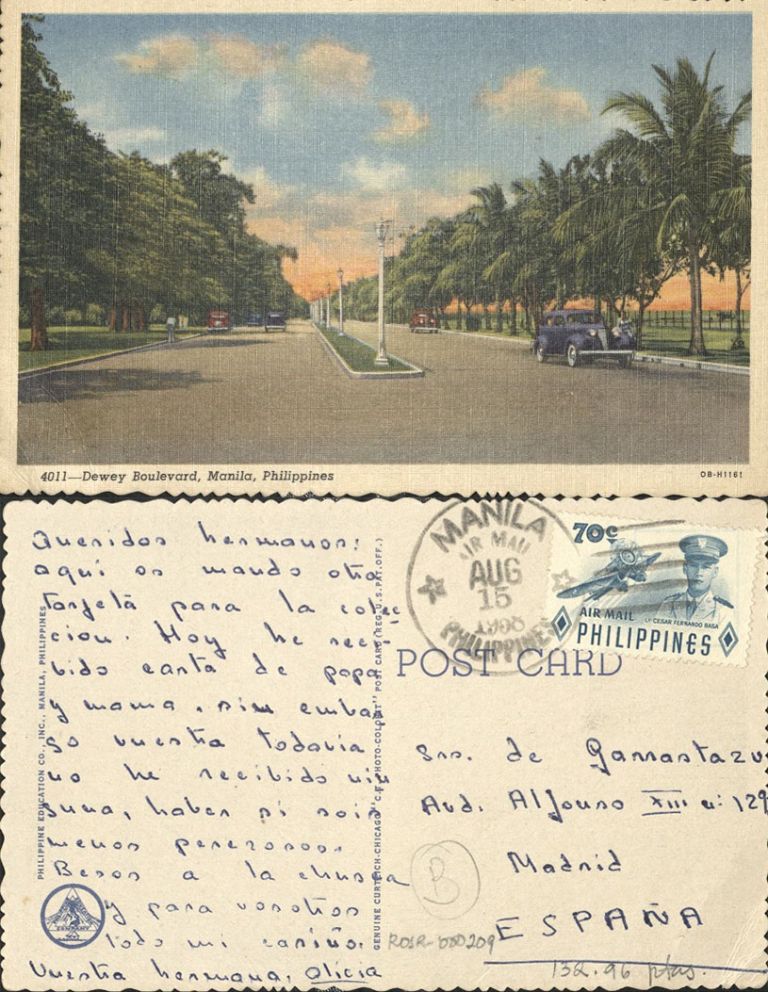 4011—Dewey Boulevard, Manila, Philippines
OB-H1161
Queridos hermanos:
aquí os mando otra
tarjetá para la colec
cion. Hoy he reci
bido carta de papa
y mama, sin embar
go vuestra todavia
no he recibido nin
guna, haber si sois
menos perezosos.
Besos a la chusma
y para vosotros
todo mi cariño.
Vuestra hermana, Alicia
PHILIPPINE EDUCATION CO., INC., MANILA, PHILIPPINES
GENUINE CURTEICH-CHICAGO "C.T. PHOTO-COLORIT" POST CARD (REG. U.S. PAT. OFF.)
MANILA
AIR MAIL
AUG
15
PHILIPPINES
70c
AIR MAIL
LT CESAR FERNANDO BASA
PHILIPPINES
POST CARD
Srs. de Garrastazu
Avd. Alfonso XIII nº 129
Madrid
ESPAÑA
B
ROSR-000209
132.96 ptas.
COMPANY